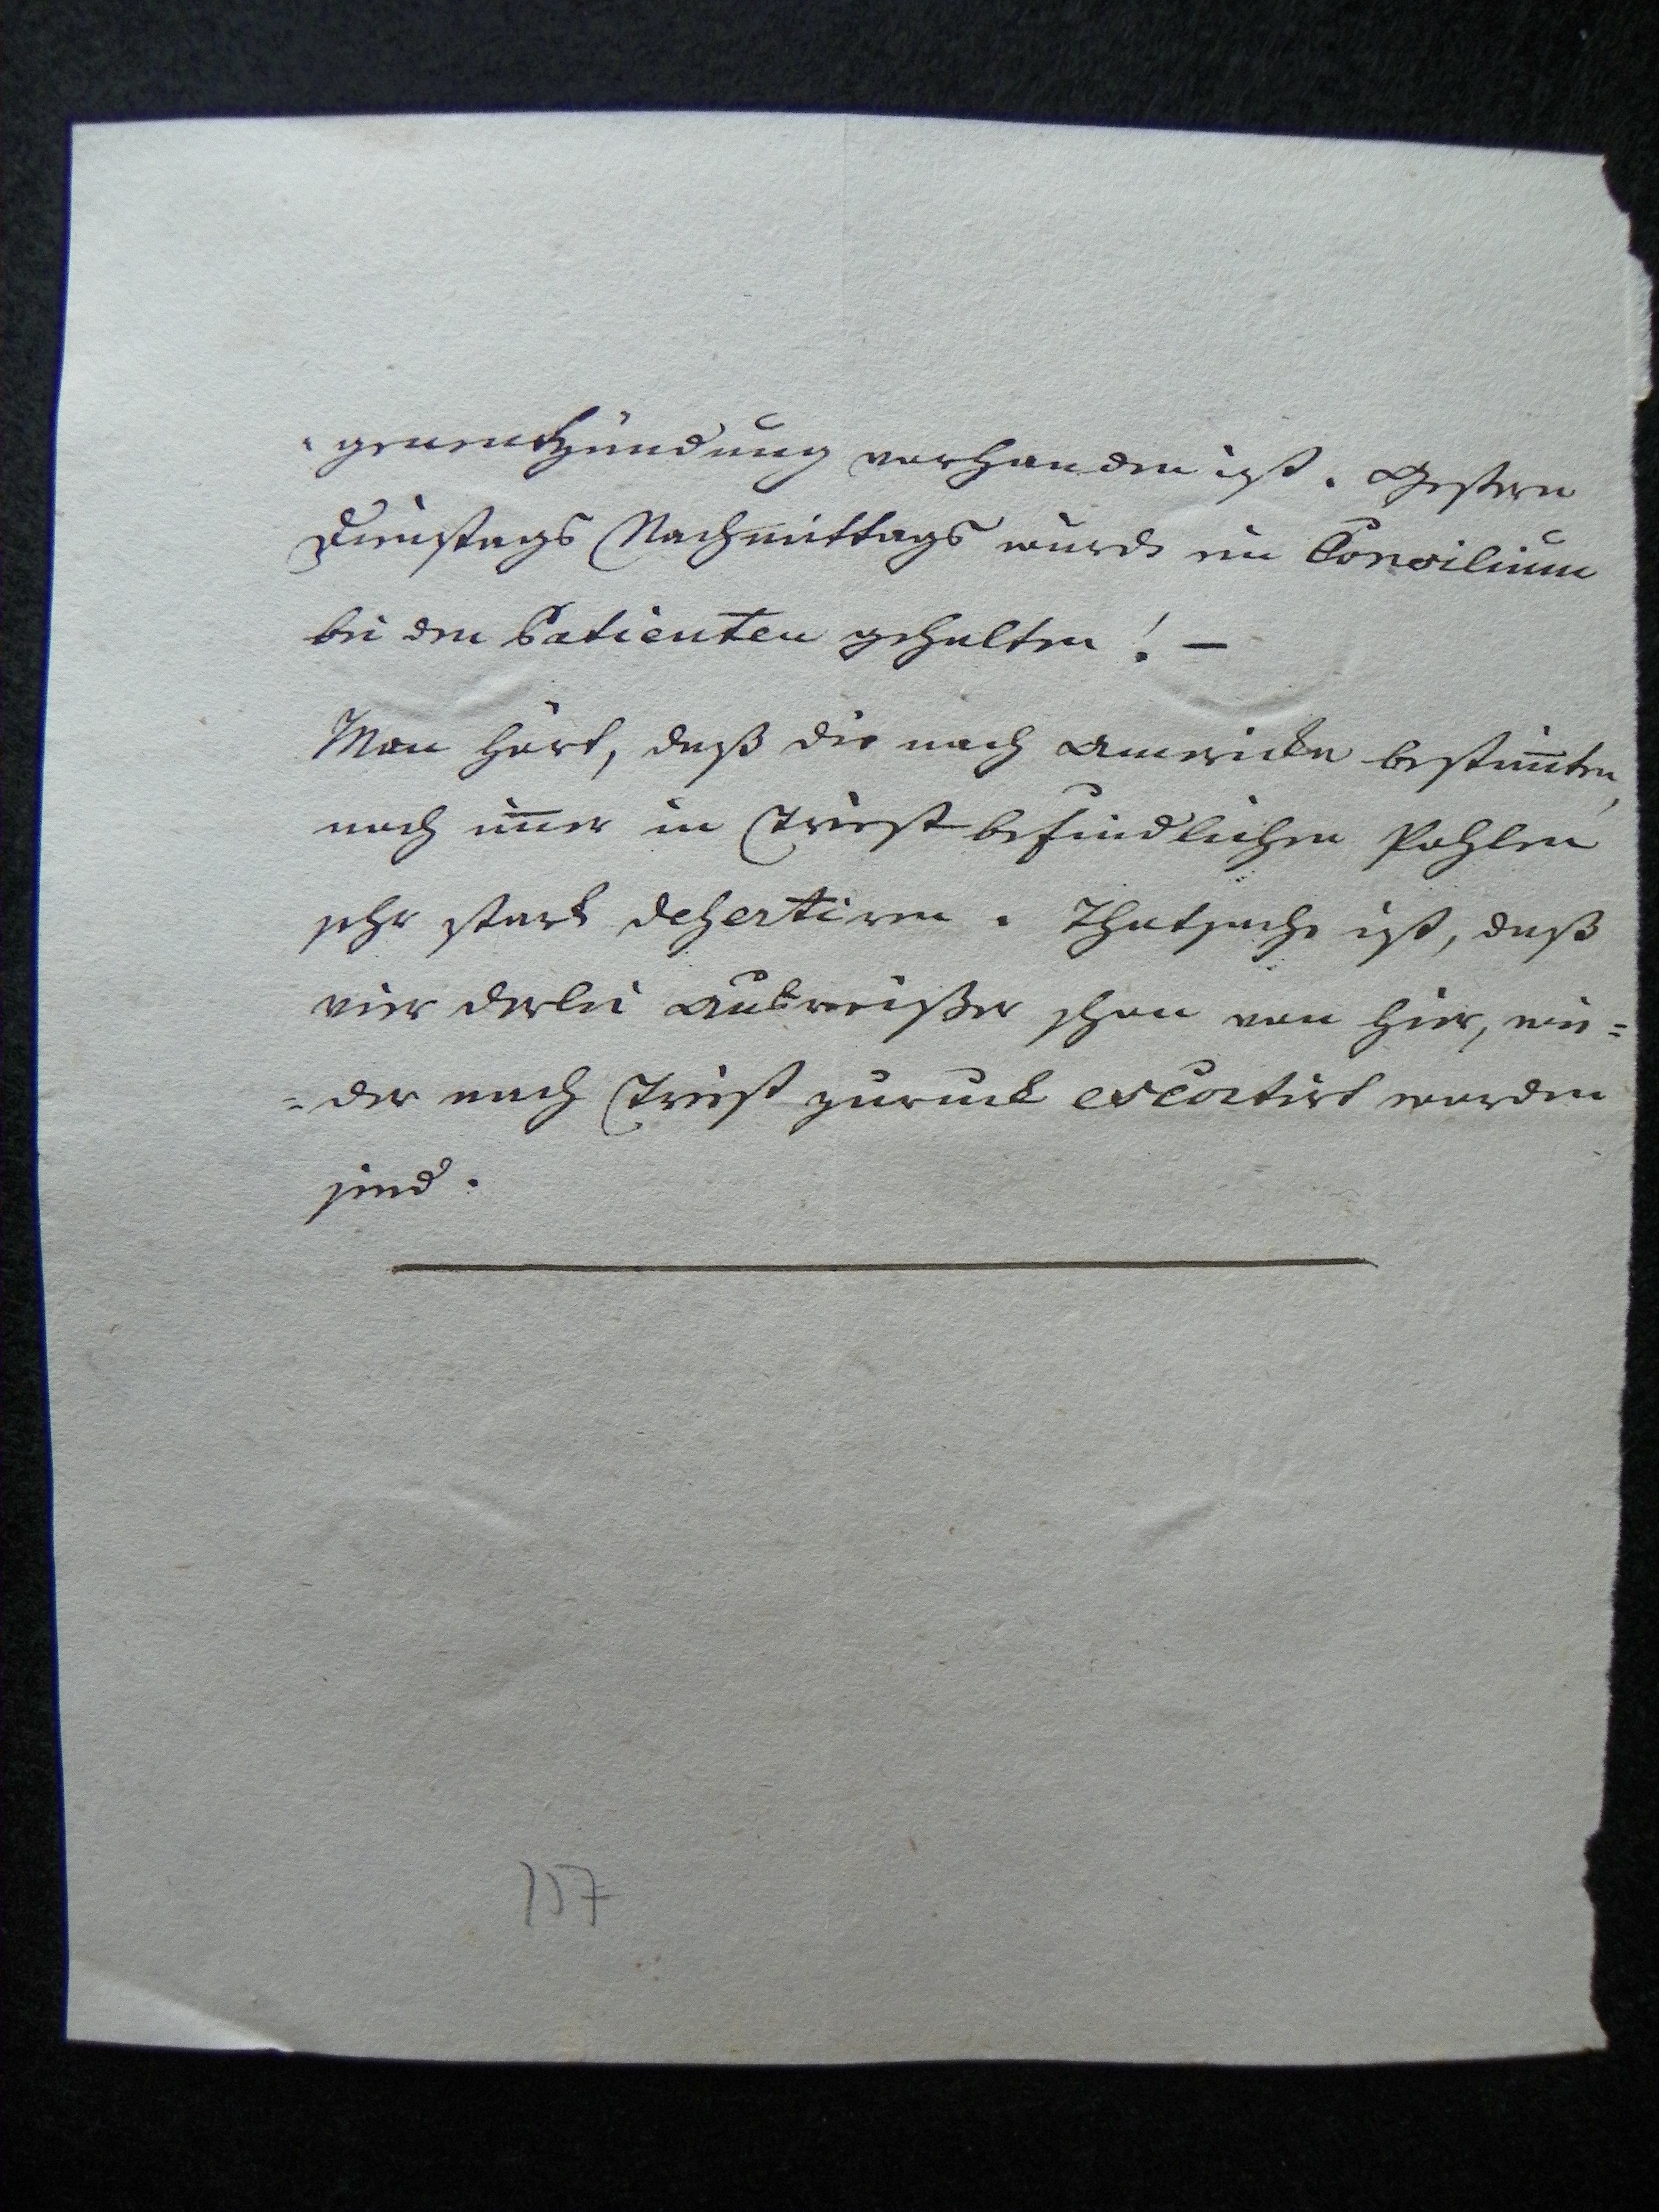 -genentzündung vorhanden ist. Gestern
Dienstags Nachmittags wurde ein Consilium
bei dem Patienten gehalten! –
Man hört, daß die nach Amerika bestim̅ten,
noch im̅er in Triest befindlichen Pohlen
sehr stark desertiren. Thatsache ist, daß
vier derlei Ausreißer schon von hier, wie=
=der nach Triest zurück escortirt worden
sind.
157